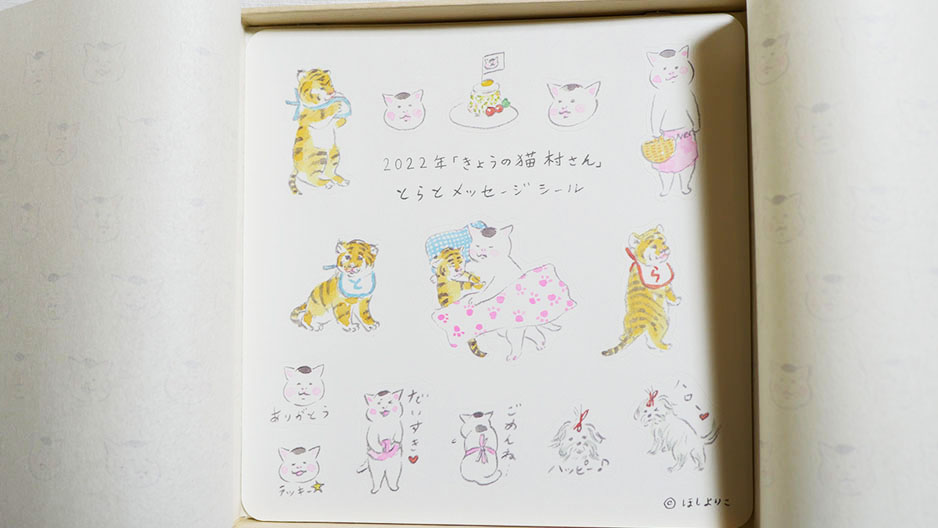 2022年「きょうの猫村さん」
とらとメッセージシール
と
ら
ありがとう
ラッキー
だいすき
ごめんね
ハッピー♪
ハロー
© ほしよりこ